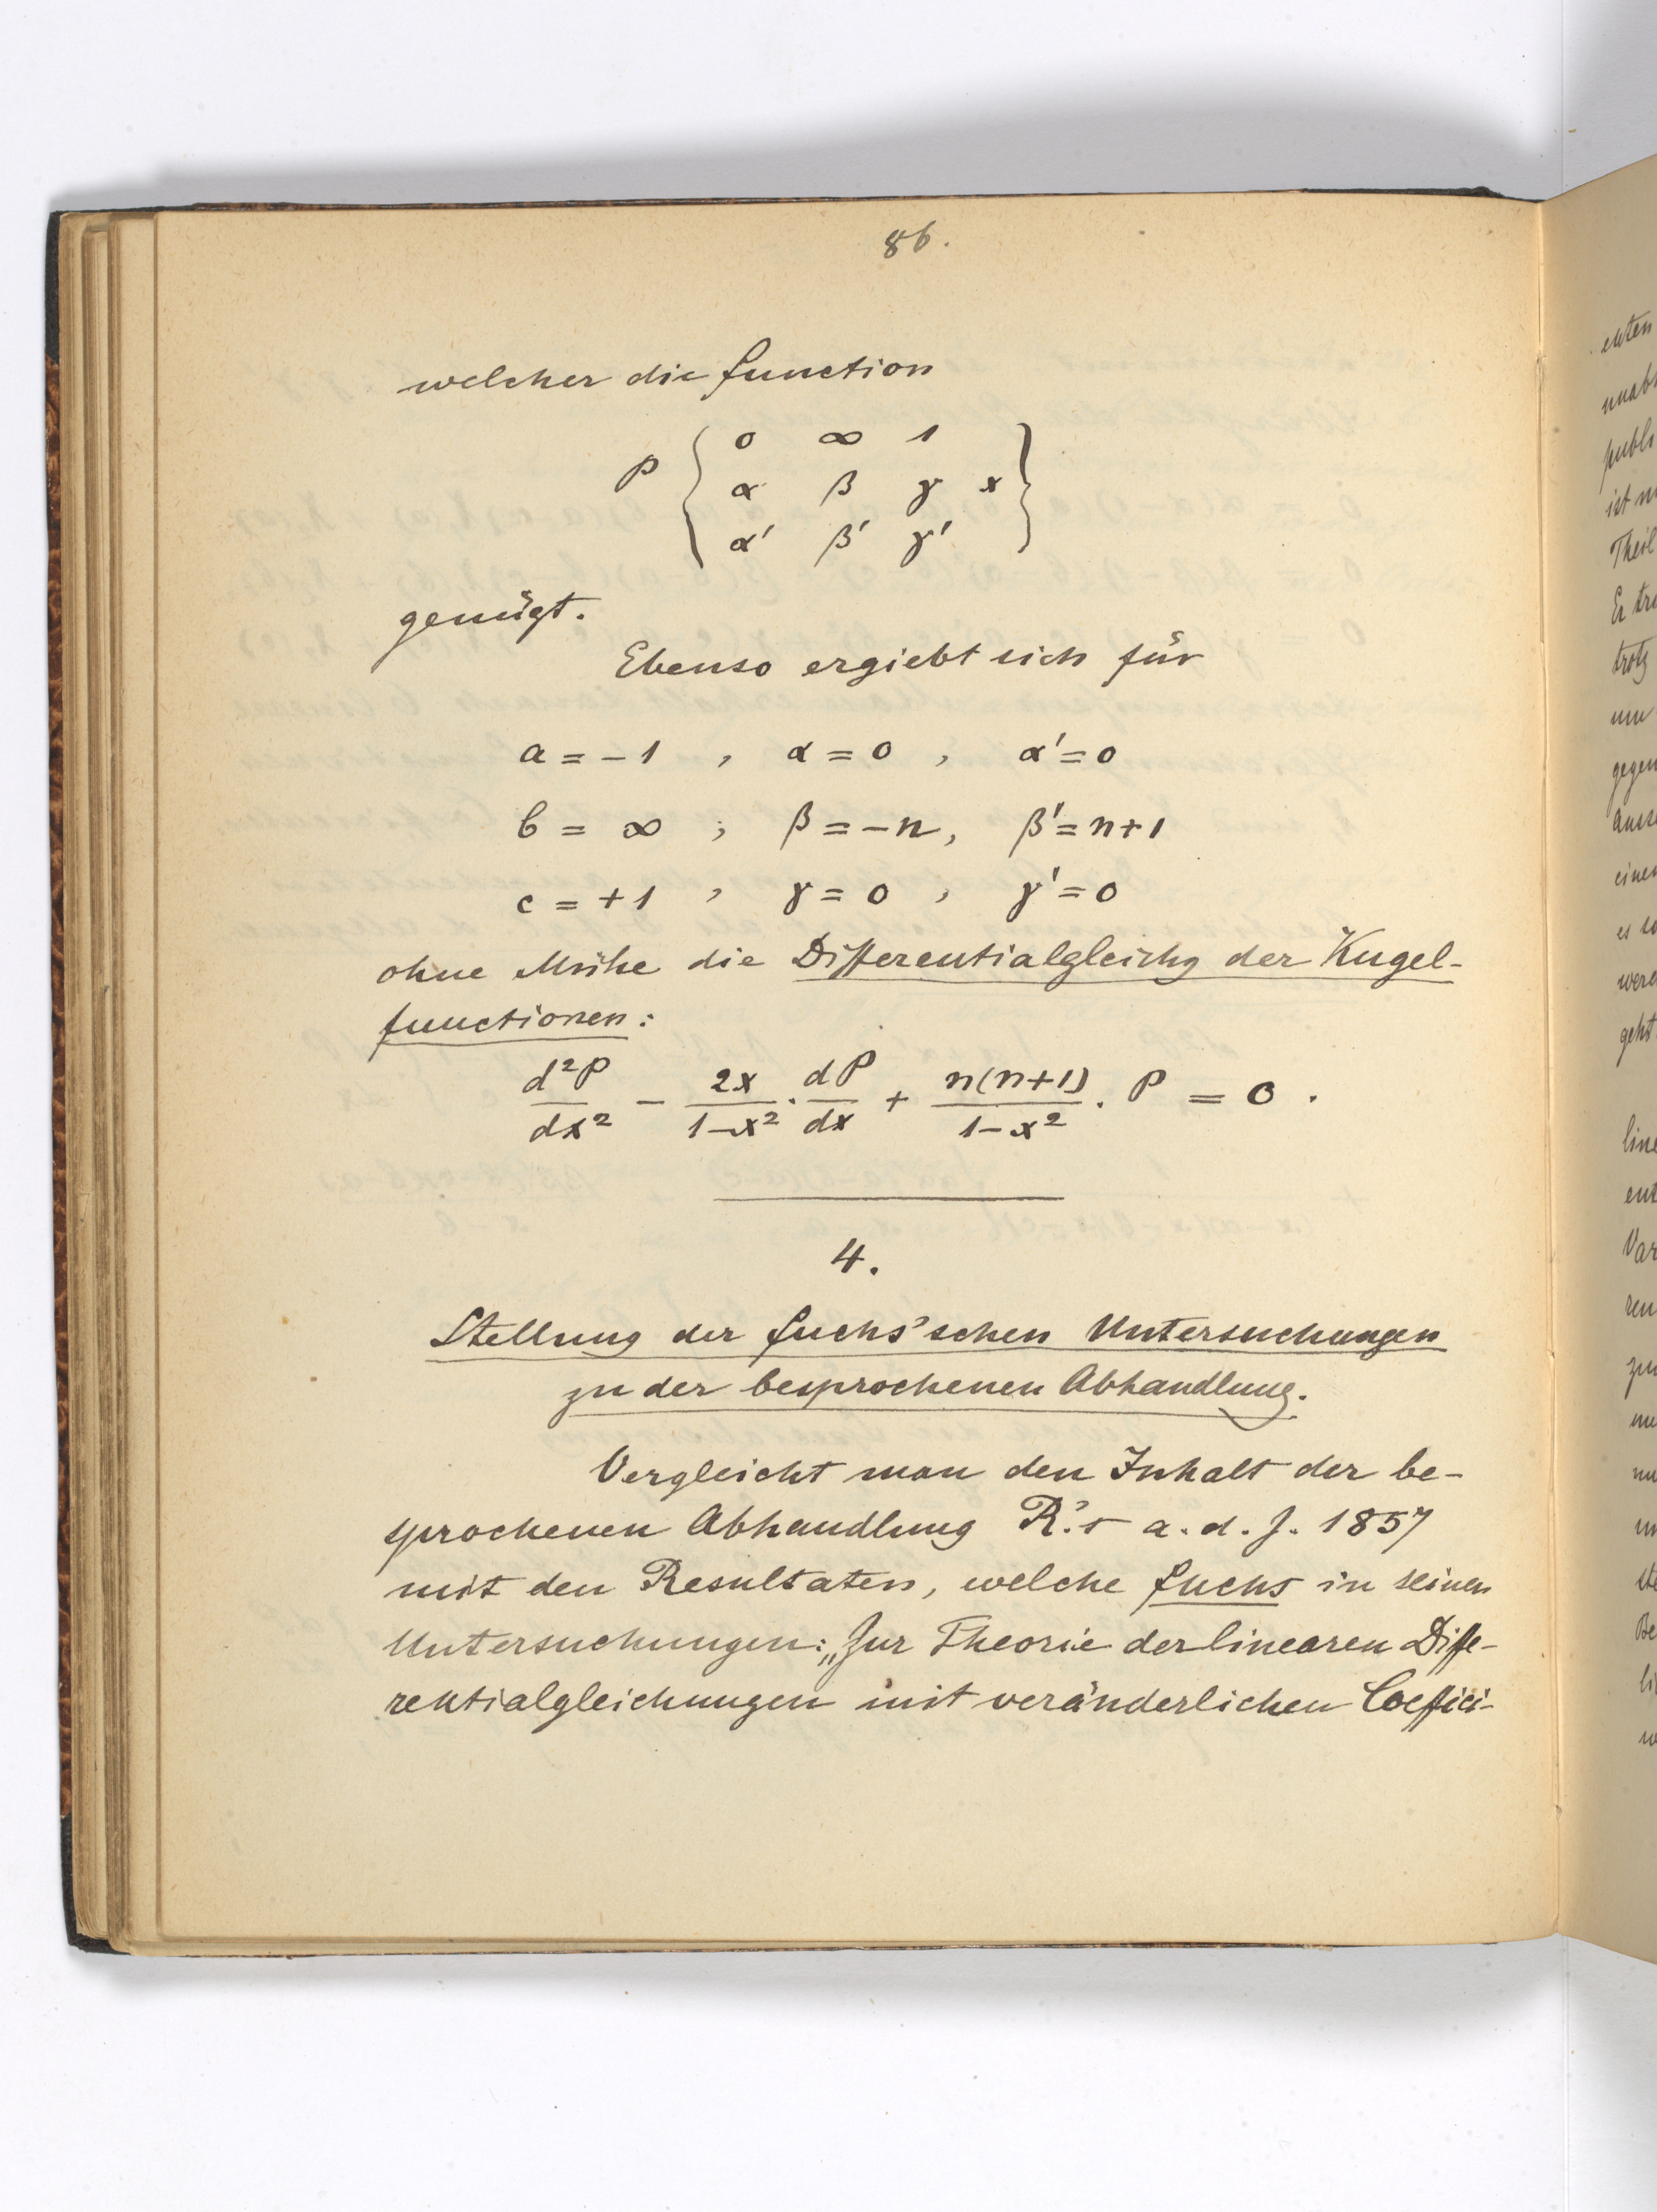 86.
welcher die Function
P { 0 ∞ 1
α β γ x
α' β' γ' }
genügt.
Ebenso ergiebt sich für
a = -1 , α = 0 , α' = 0
b = ∞ , β = -n, β' = n+1
c = +1 , γ = 0 , γ' = 0
ohne Mühe die Differentialgleichg der Kugel-
functionen:
d²P/dx² - 2x/1-x² · dP/dx + n(n+1)/1-x² · P = 0 .
4.
Stellung der Fuchs'schen Untersuchungen
zu der besprochenen Abhandlung.
Vergleicht man den Inhalt der be-
sprochenen Abhandlung R.'s a. d. J. 1857
mit den Resultaten, welche Fuchs in seinen
Untersuchungen: „Zur Theorie der linearen Diffe-
rentialgleichungen mit veränderlichen Coeffici-
enten
publ
ist
Theil
Er
trotz
gegen
einer
es
geht